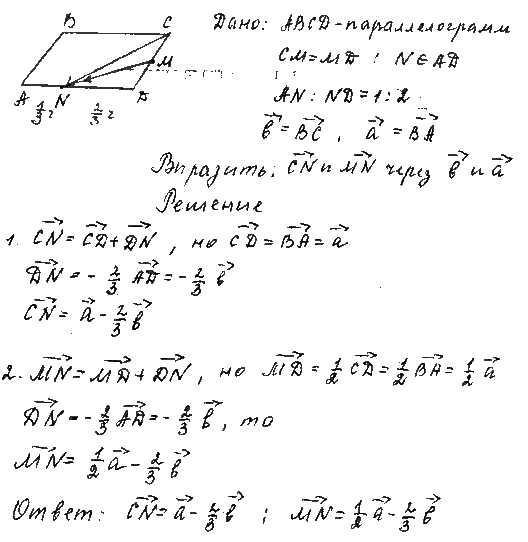 B C
M
A N D
1/3 2/3
Дано: ABCD - параллелограмм
CM = MD ; N ∈ AD
AN : ND = 1 : 2
b⃗ = BC⃗ , a⃗ = BA⃗
Выразить: CN⃗ и MN⃗ через b⃗ и a⃗
Решение
1. CN⃗ = CD⃗ + DN⃗ , но CD⃗ = BA⃗ = a⃗
DN⃗ = - 2/3 AD⃗ = - 2/3 b⃗
CN⃗ = a⃗ - 2/3 b⃗
2. MN⃗ = MD⃗ + DN⃗ , но MD⃗ = 1/2 CD⃗ = 1/2 BA⃗ = 1/2 a⃗
DN⃗ = - 2/3 AD⃗ = - 2/3 b⃗ , то
MN⃗ = 1/2 a⃗ - 2/3 b⃗
Ответ: CN⃗ = a⃗ - 2/3 b⃗ ; MN⃗ = 1/2 a⃗ - 2/3 b⃗